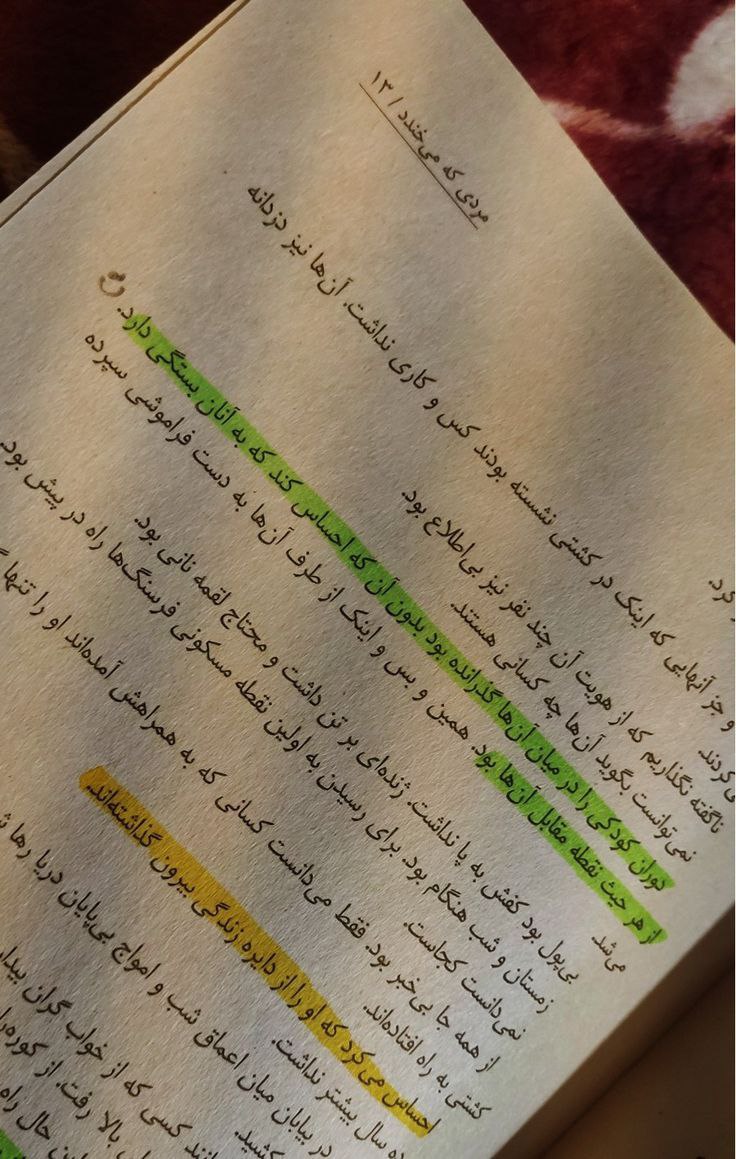 مردی که می‌خندد / ۱۳
کرد.
و جز آنهایی که اینک در کشتی نشسته بودند کس و کاری نداشت. آن‌ها نیز دزدانه
می‌کردند.
ناگفته نگذاریم که از هویت آن چند نفر نیز بی‌اطلاع بود.
نمی‌توانست بگوید آن‌ها چه کسانی هستند.
دوران کودکی را در میان آن‌ها گذرانده بود بدون آن که احساس کند که به آنان بستگی دارد.
از هر حیث نقطه مقابل آن‌ها بود. همین و بس و اینک از طرف آن‌ها به دست فراموشی سپرده
می‌شد.
بی‌پول بود کفش به پا نداشت. ژنده‌ای بر تن داشت و محتاج لقمه نانی بود.
زمستان و شب هنگام بود. برای رسیدن به اولین نقطه مسکونی فرسنگ‌ها راه در پیش بود.
نمی‌دانست کجاست.
از همه جا بی‌خبر بود. فقط می‌دانست کسانی که به همراهش آمده‌اند او را تنها
کشتی به راه افتاده‌اند.
احساس می‌کرد که او را از دایره زندگی بیرون گذاشته‌اند.
ده سال بیشتر نداشت.
در بیابان میان اعماق شب و امواج بی‌پایان دریا رها
کشید.
کسی که از خواب گران
بالا رفت. از
حال راه